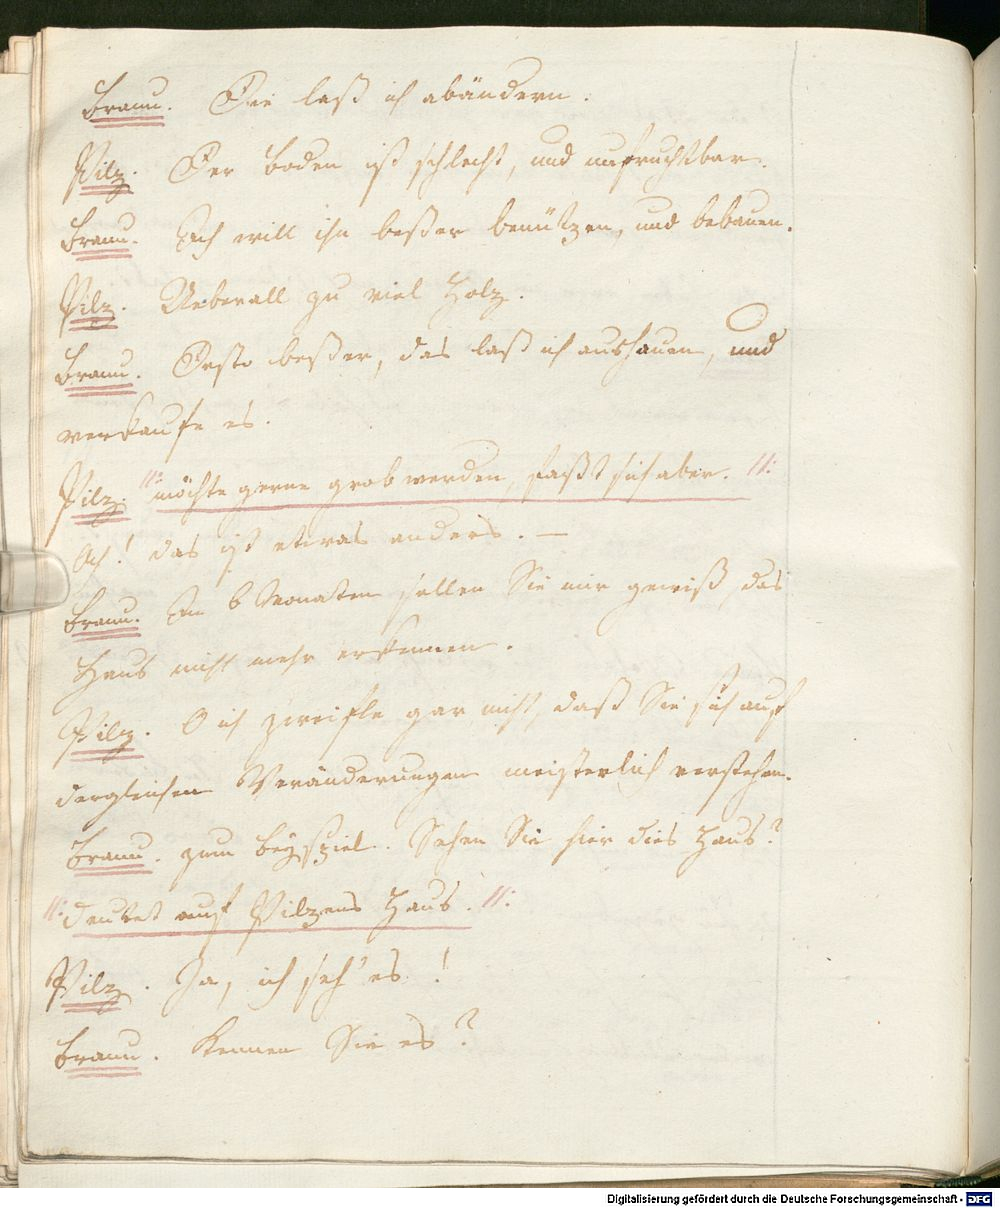 Braun. Die laß ich abändern.
Pilz. Der Boden ist schlecht, und unfruchtbar.
Braun. Ich will ihn beßer benützen, und bebauen.
Pilz. Ueberall zu viel Holz.
Braun. Desto beßer, das laß ich aushauen, und
verkaufe es.
Pilz. //: möchte gerne grob werden, faßt sich aber. //:
Ach! das ist etwas anders. —
Braun. In 6 Monaten sollen Sie mir gewiß, das
Haus nicht mehr erkennen.
Pilz. O ich zweifle gar nicht, daß Sie sich auf
dergleichen Veränderungen meisterlich verstehen.
Braun. zum Beyspiel. Sehen Sie hier dies Haus?
//: deutet auf Pilzens Haus. //:
Pilz. Ja, ich seh' es!
Braun. Kennen Sie es?
Digitalisierung gefördert durch die Deutsche Forschungsgemeinschaft - DFG